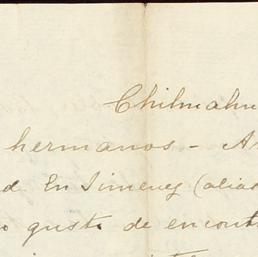 Chihuahu
hermanos - A
d En Jimenez (alias
o gusto de encont